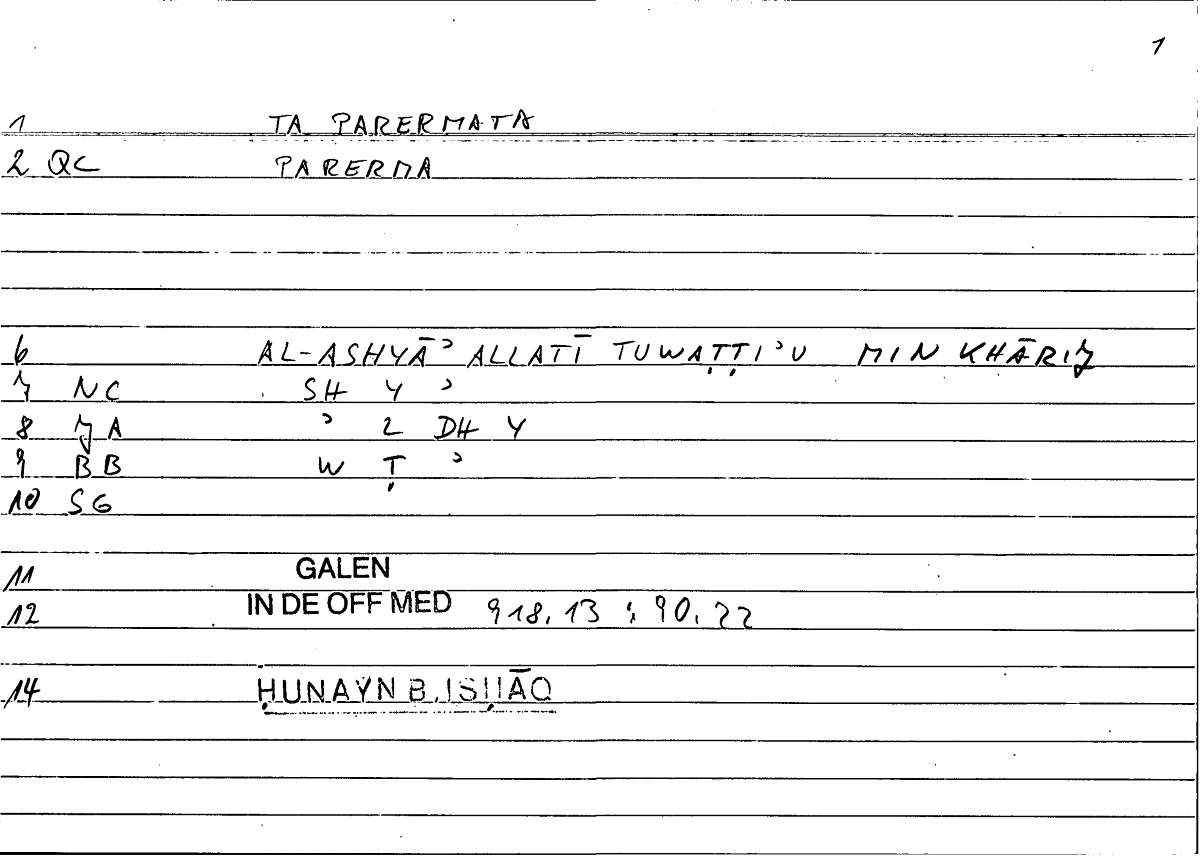 1
1 TA PARERMATA
2 QC PARERMA
6 AL-ASHYĀʾ ALLATĪ TUWAṬṬIʾU MIN KHĀRIJ
7 NC SH Y ʾ
8 JA ʾ L DH Y
9 BB W Ṭ ʾ
10 SG
11 GALEN
12 IN DE OFF MED 918,13 ; 90,22
14 ḤUNAYN B. ISḤĀQ